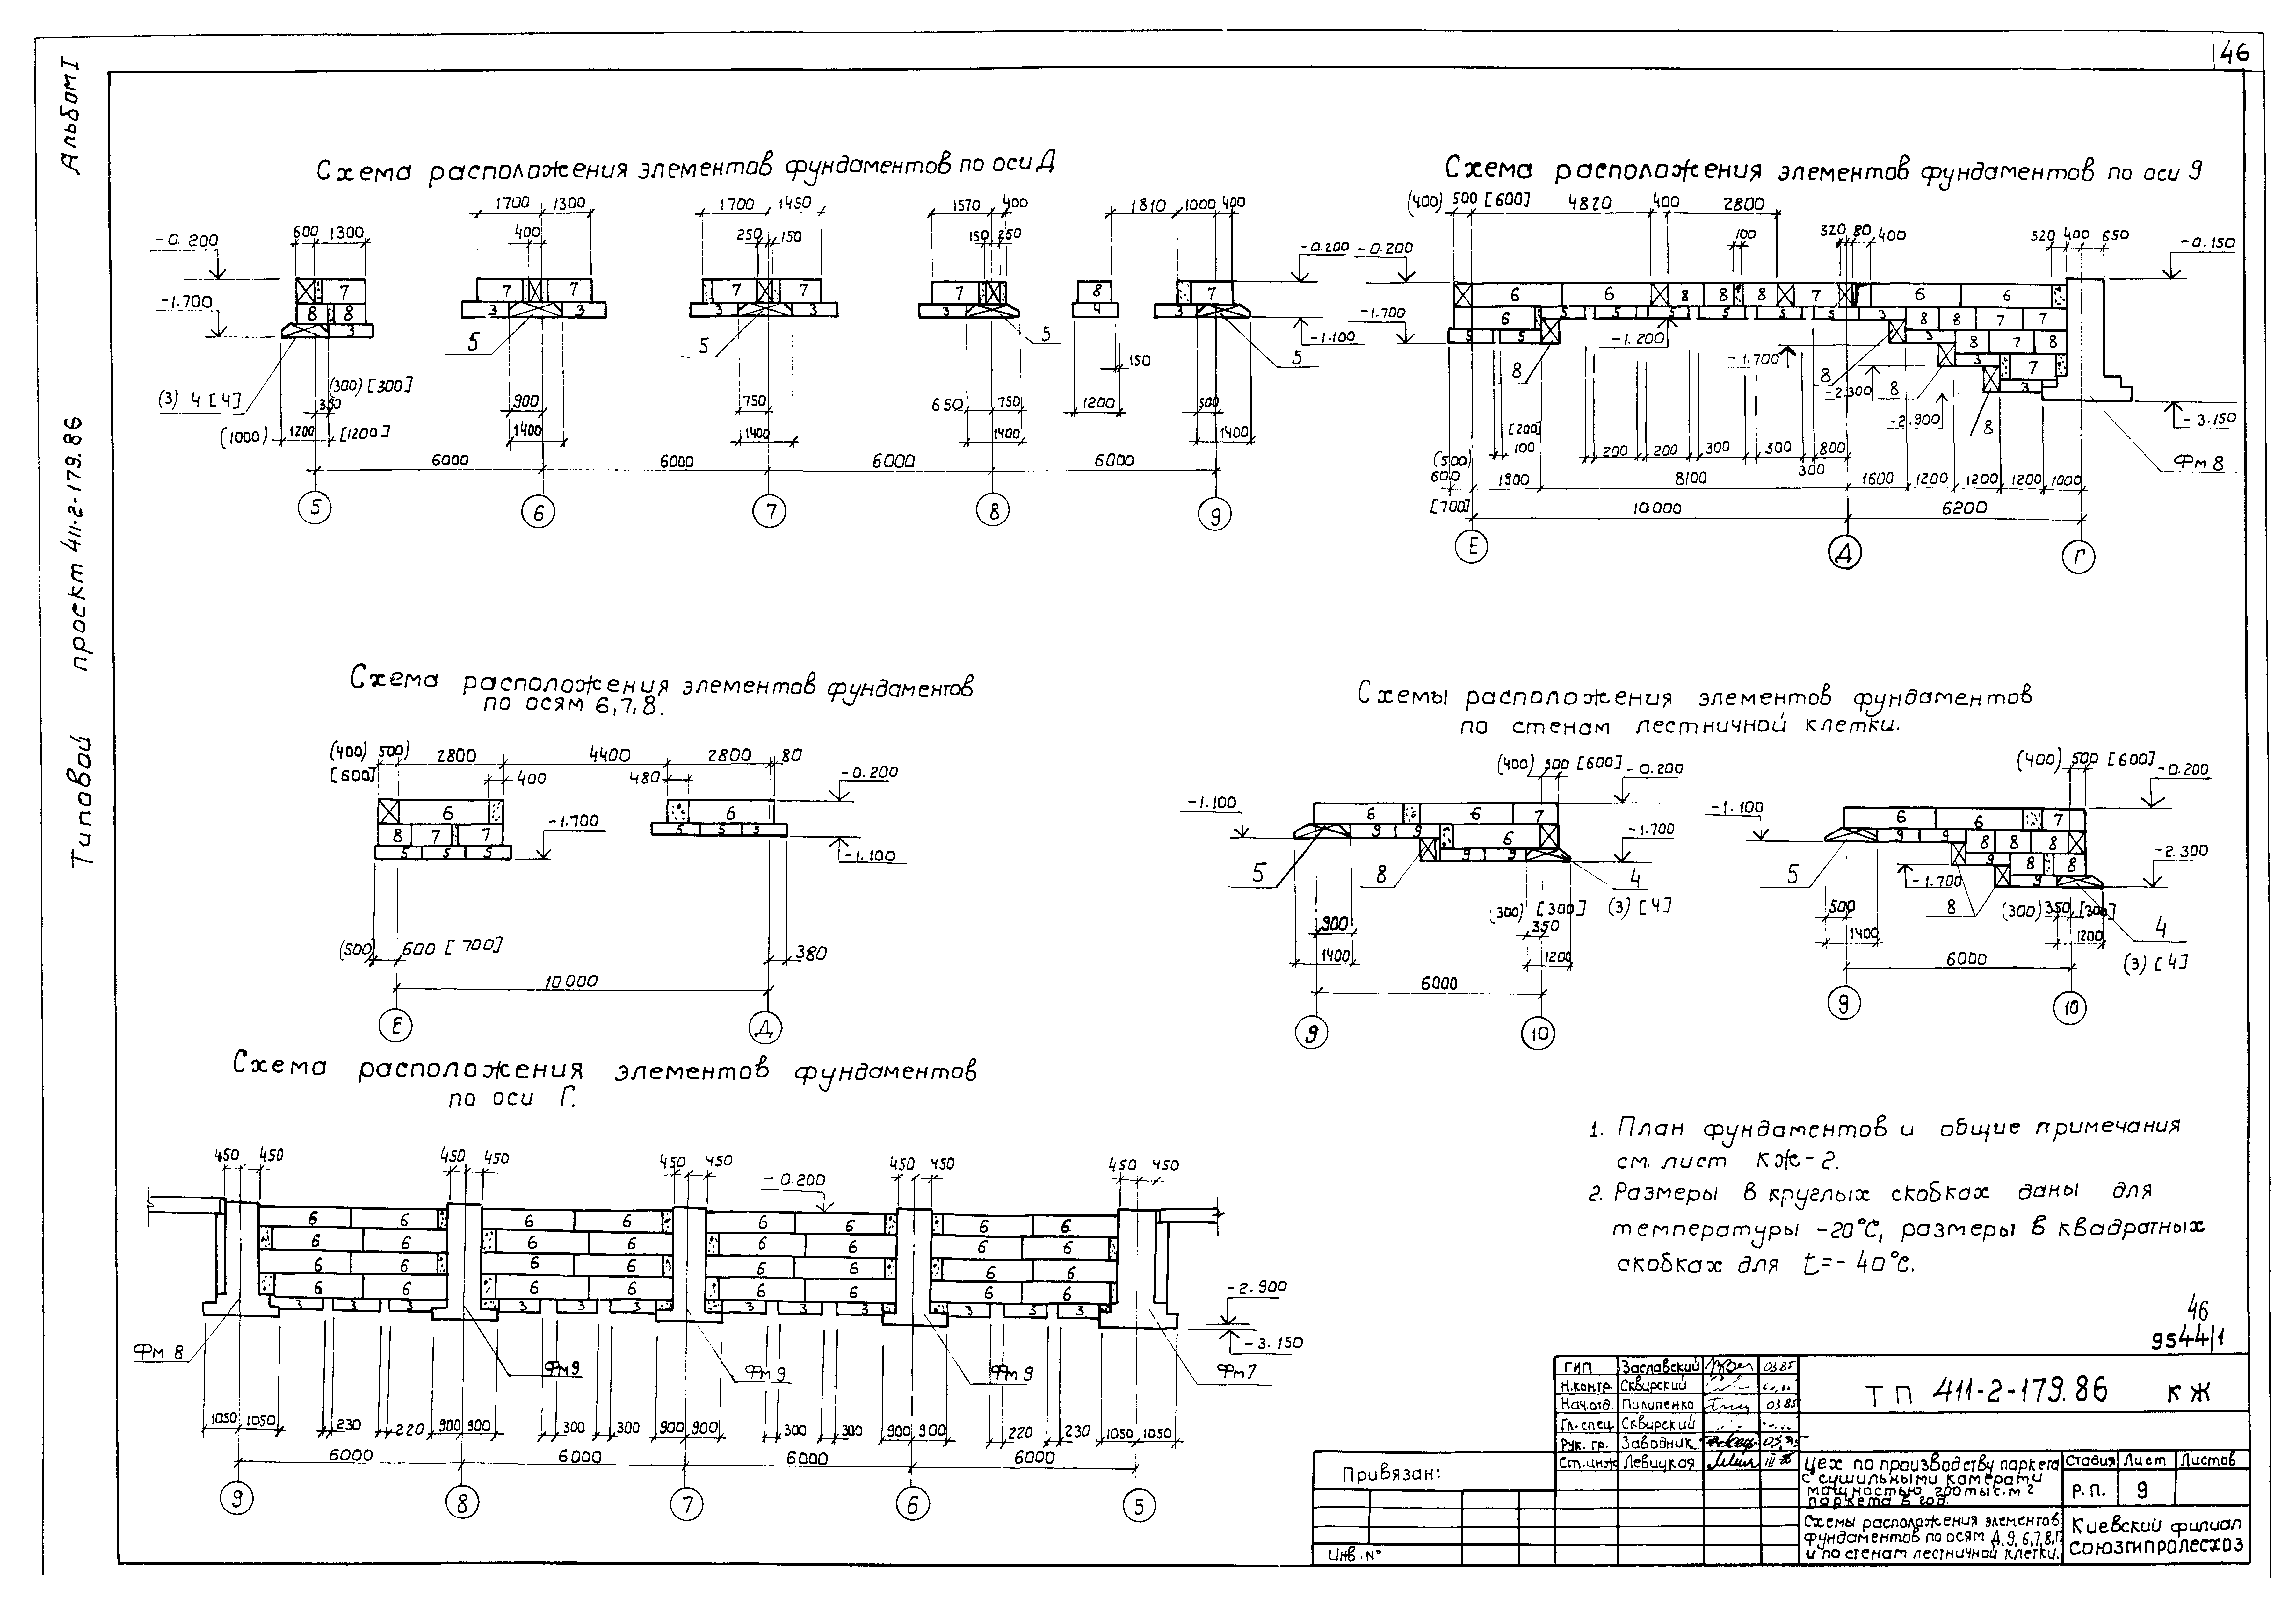 46
Альбом I
Типовой проект 411-2-179.86
Схема расположения элементов фундаментов по оси Д
1700 1300 1700 1450 1570 400 1810 1000 400
600 1300 400 250 150 150 250
-0.200 -0.200
-1.700 -1.100
7 7 7 7 7 7 8 7
8 8 3 3 3 3 3 3 4 3
5 5 5 5
(3) 4 [4]
(300) [300]
350
150
900 750 650 750 1200 500
(1000) 1200 [1200] 1400 1400 1400 1400
6000 6000 6000 6000
5 6 7 8 9
Схема расположения элементов фундаментов по оси 9
(400) 500 [600] 4820 400 2800
100 320 80 400 520 400 650
-0.200 -0.150
6 6 8 8 8 7 6 6
-1.700 6 5 5 5 5 5 5 3 8 8 7 7
5 5 3 8 7 8
8 -1.200 -1.700 8 3 7
-2.300 8 3
-2.900 8 -3.150
Фм 8
[200]
100 200 200 300 300 800
300
(500)
600 1900 8100 1600 1200 1200 1200 1000
[700] 10 000 6200
Е Д Г
Схема расположения элементов фундаментов
по осям 6,7,8.
(400) 500) 2800 4400 2800 80
[600] 400 480
-0.200
6 6
8 7 7 -1.700 5 5 3
5 5 5 -1.100
(500) 600 [700] 380
10 000
Е Д
Схемы расположения элементов фундаментов
по стенам лестничной клетки.
(400) 500 [600] -0.200
-1.100 6 6 7
9 9 6 -1.700
9 9
5 8 4
(300) [300] (3) [4]
900 350
1400 1200
6000
9 10
(400) 500 [600] -0.200
-1.100 6 6 7
9 9 8 8 8
9 8 8 -2.300
5 -1.700 9
500 8 (300) 350 [300]
1400 1200 4
6000 (3) [4]
9 10
Схема расположения элементов фундаментов
по оси Г.
450 450 450 450 450 450 450 450 450 450
-0.200
6 6 6 6 6 6 6 6
6 6 6 6 6 6 6 6
6 6 6 6 6 6 6 6
6 6 6 6 6 6 6 6
3 3 3 3 3 3 3 3 3 3 3 3
-2.900
-3.150
Фм 8 Фм 9 Фм 9 Фм 9 Фм 7
1050 1050 230 220 900 900 300 300 900 900 300 300 900 900 220 230 1050 1050
6000 6000 6000 6000
9 8 7 6 5
1. План фундаментов и общие примечания
см. лист КЖ-2.
2. Размеры в круглых скобках даны для
температуры -20°С, размеры в квадратных
скобках для t=-40°С.
46
9544/1
ГИП Заславский 03.85
Н.контр Сквирский
Нач.отд. Пилипенко 03.85
Гл.спец. Сквирский
Рук. гр. Заводник
Ст.инж Левицкая
ТП 411-2-179.86 КЖ
Привязан:
Инв.№
Цех по производству паркета
с сушильными камерами
мощностью 200 тыс.м²
паркета в год.
Стадия Лист Листов
Р.П. 9
Схемы расположения элементов
фундаментов по осям Д,9,6,7,8,Г
и по стенам лестничной клетки.
Киевский филиал
Союзгипролесхоз